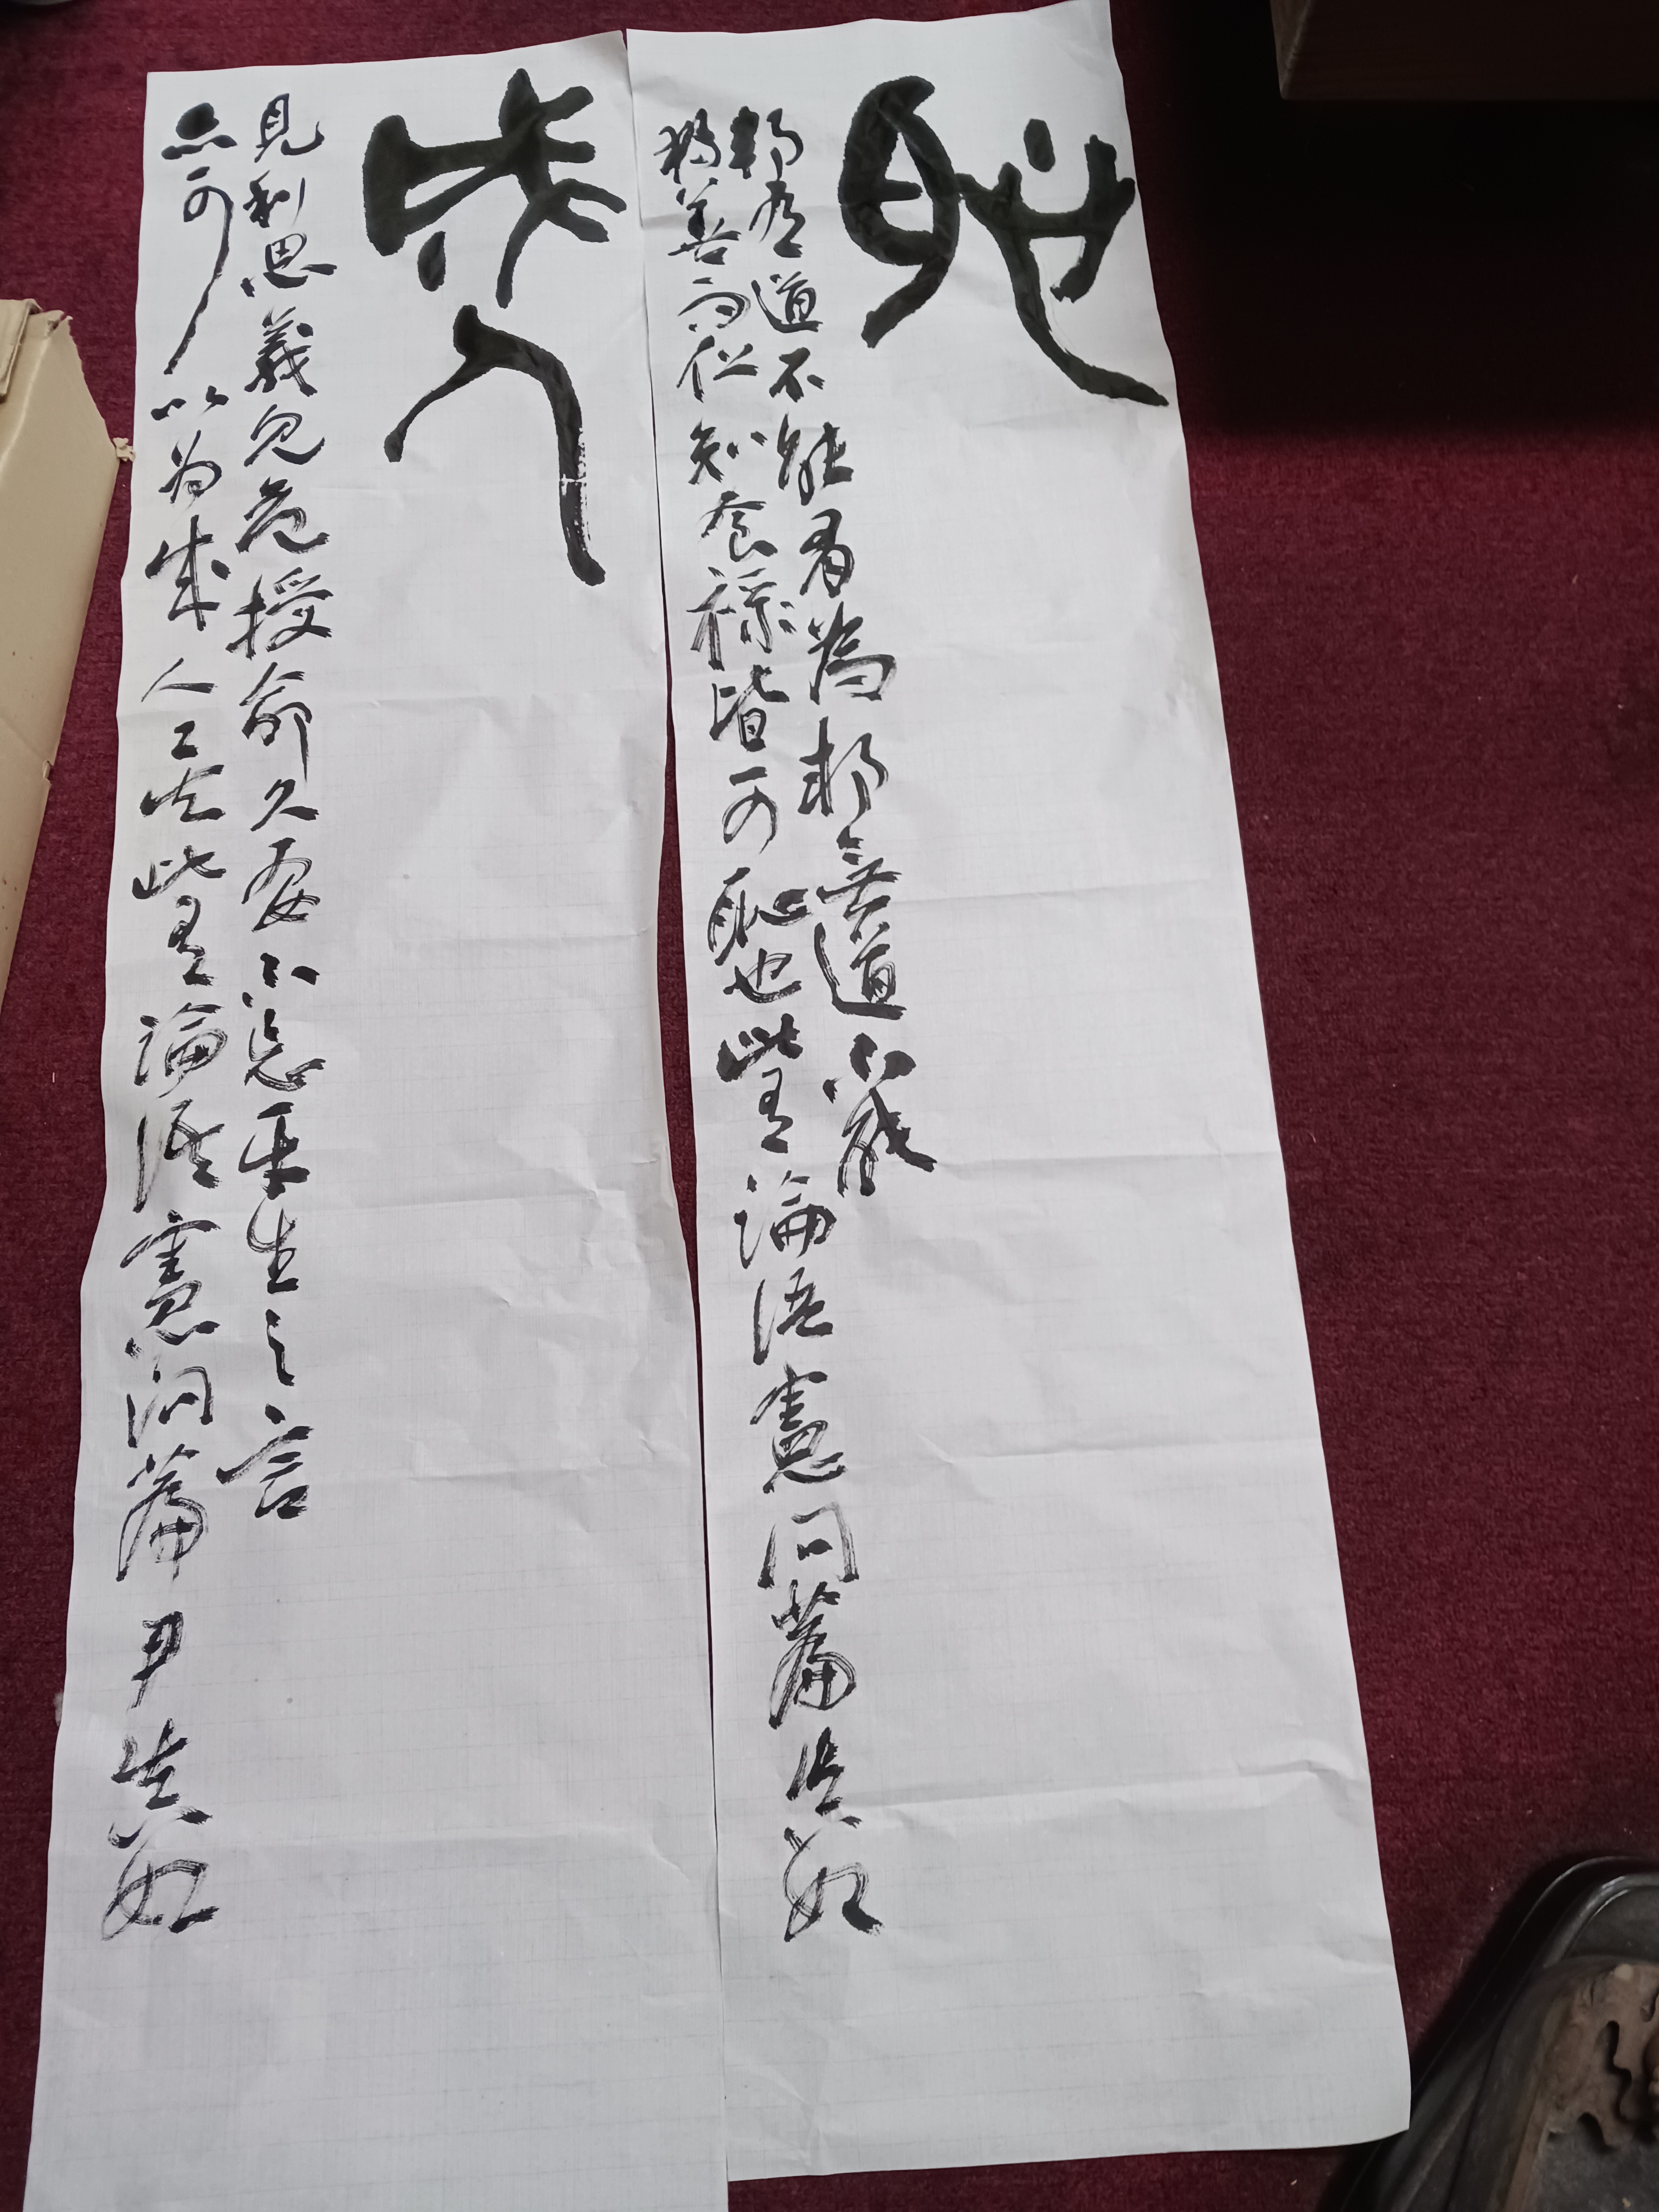 恥
邦有道不能有為邦無道不能
獨善而但知食祿皆可恥也此論語憲問篇
成人
見利思義見危授命久要不忘平生之言
亦可以为成人矣此論語憲問篇